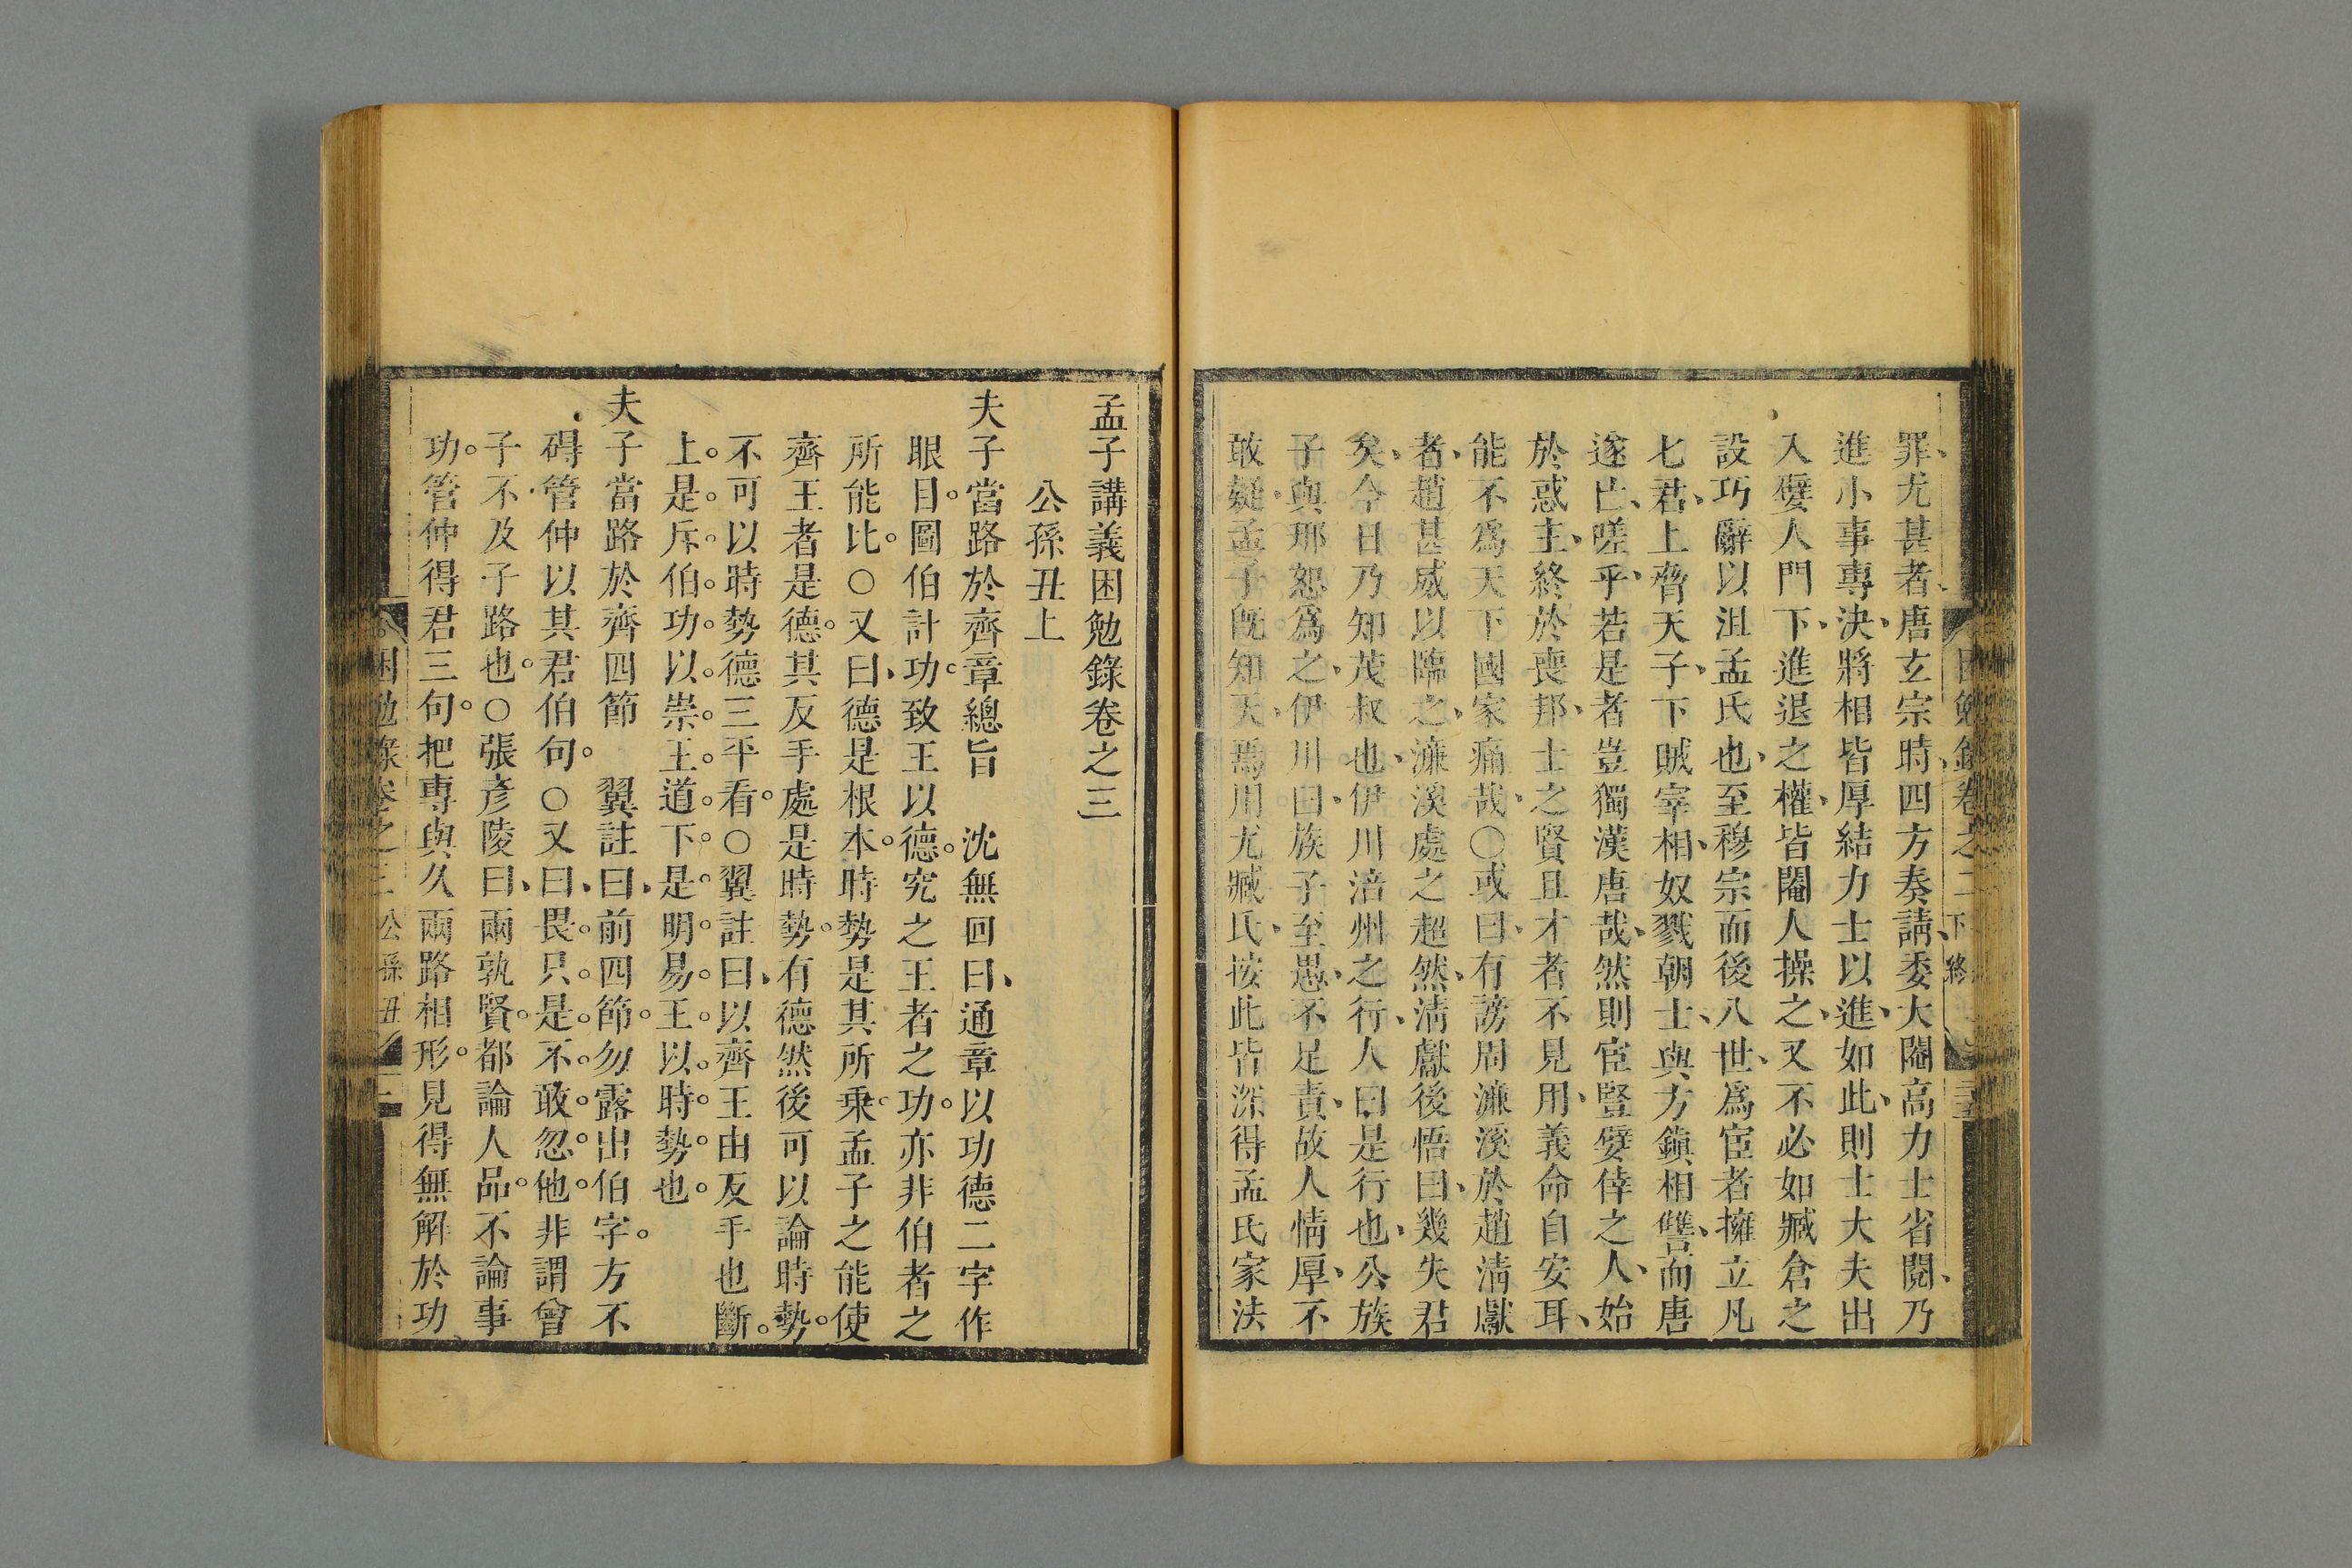 罪、尤甚者、唐玄宗時、四方奏請、委大閹高力士省閱、乃
進小事專決、將相皆厚結力士以進、如此、則士大夫出
入嬖人門下、進退之權、皆閹人操之、又不必如臧倉之
設巧辭以沮孟氏也、至穆宗而後八世、爲宦者擁立凡
七君、上脅天子、下賊宰相、奴戮朝士、與方鎭相讐、而唐
遂亡、嗟乎、若是者豈獨漢唐哉、然則宦豎嬖倖之人、始
於惑主、終於喪邦、士之賢且才者不見用、義命自安耳、
能不爲天下國家痛哉、○或曰、有謗周濂溪於趙清獻
者、趙甚威以臨之、濂溪處之超然、清獻後悟曰、幾失君
矣、今日乃知茂叔也、伊川涪州之行、人曰是行也、公族
子與邢恕爲之、伊川曰、族子至愚、不足責、故人情厚、不
敢疑、孟子旣知天、焉用尤臧氏、按此皆深得孟氏家法
困勉錄卷之二下終
孟子講義困勉錄卷之三
公孫丑上
夫子當路於齊章總旨　沈無回曰、通章以功德二字作
眼目。圖伯計功。致王以德。究之王者之功。亦非伯者之
所能比。○又曰、德是根本。時勢是其所乘。孟子之能使
齊王者是德。其反手處是時勢。有德然後可以論時勢。
不可以時勢德三平看。○翼註曰、以齊王由反手也斷。
上。是。斥。伯。功。以。崇。王。道。下。是。明。易。王。以。時。勢。也。
夫子當路於齊四節　翼註曰、前四節。勿露出伯字。方不
碍管仲以其君伯句。○又曰、畏。只。是。不。敢。忽。他。非謂曾
子不及子路也。○張彥陵曰、兩孰賢。都論人品。不論事
功。管仲得君三句。把專與久兩路相形。見得無解於功
困勉錄卷之三　公孫丑　一